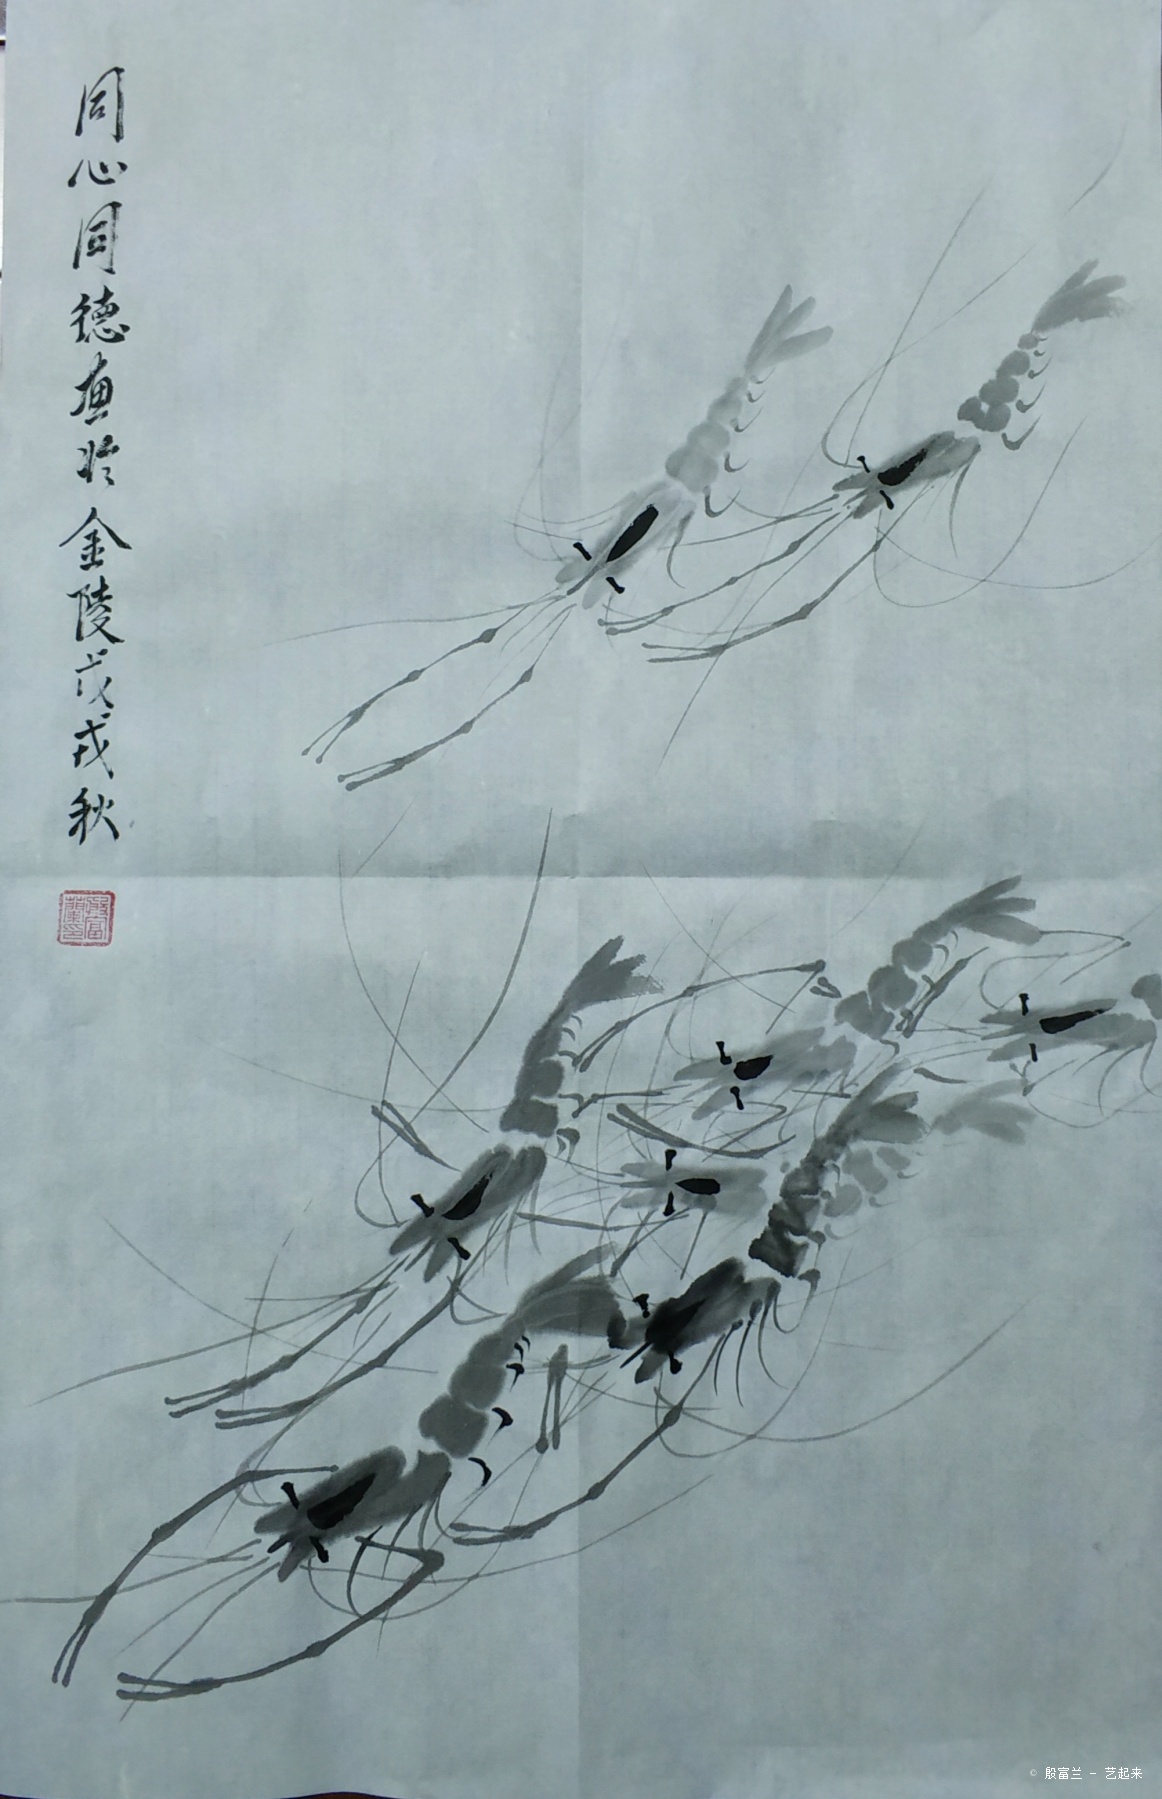 同心同德畫於金陵戊戌秋
殷富
蘭印
© 殷富兰 - 艺起来